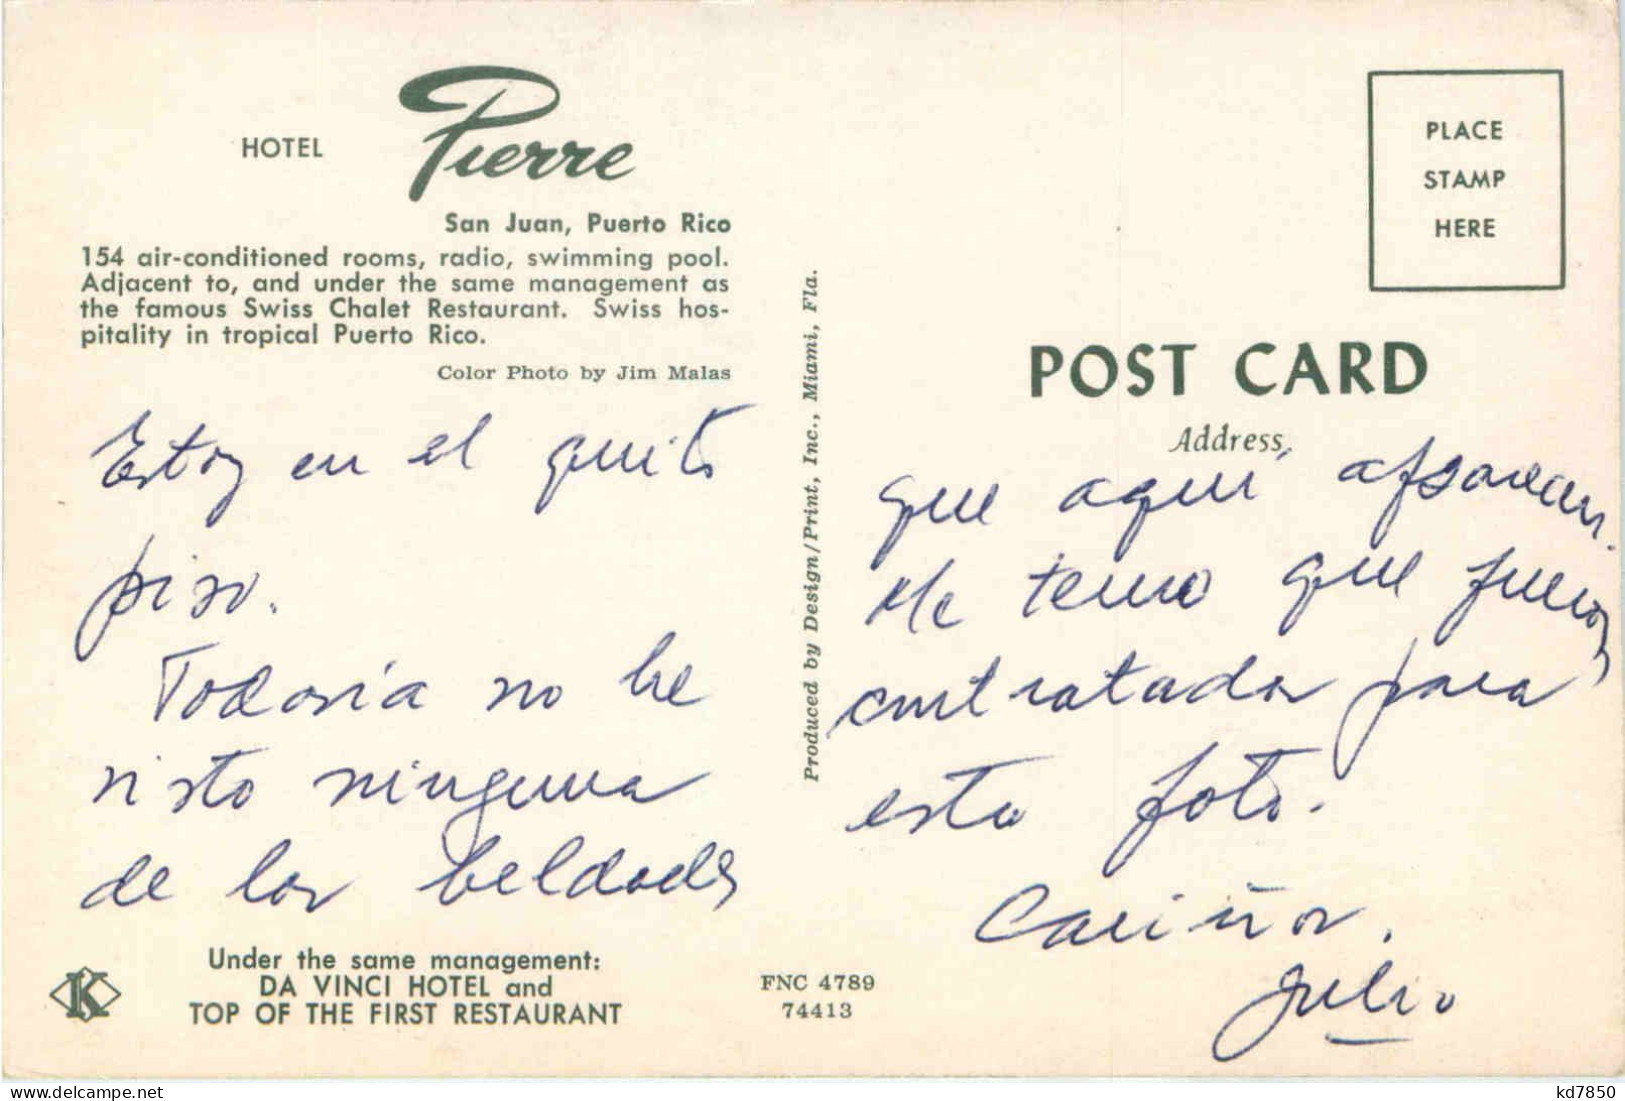 HOTEL Pierre
San Juan, Puerto Rico
154 air-conditioned rooms, radio, swimming pool.
Adjacent to, and under the same management as
the famous Swiss Chalet Restaurant. Swiss hos-
pitality in tropical Puerto Rico.
Color Photo by Jim Malas
Estoy en el quito
piso.
Todavía no he
visto ninguna
de las beldades
Under the same management:
DA VINCI HOTEL and
TOP OF THE FIRST RESTAURANT
K
Produced by Design/Print, Inc., Miami, Fla.
FNC 4789
74413
PLACE
STAMP
HERE
POST CARD
Address
que aquí aparecen.
Me temo que fueron
contratadas para
esta foto.
Cariños,
Julio
kd7850